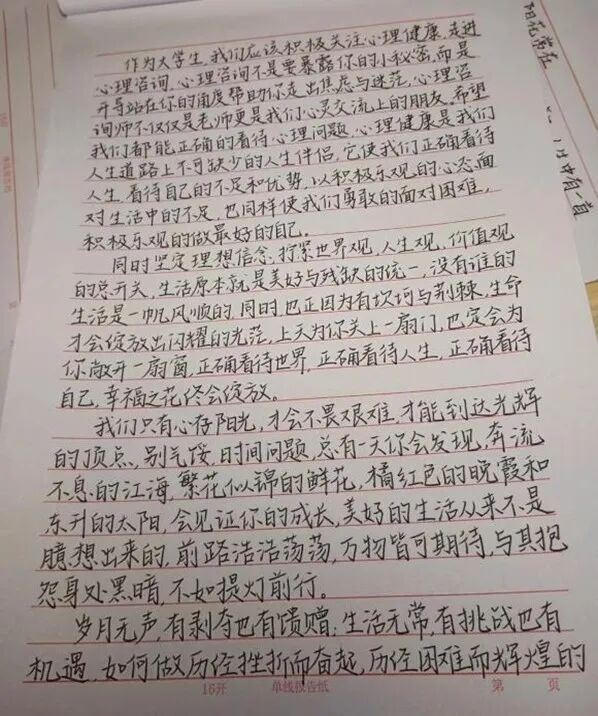 作为大学生，我们应该积极关注心理健康，走进
心理咨询，心理咨询不是要暴露你的小秘密，而是
开导站在你的角度帮助你走出焦虑与迷茫，心理咨
询师不仅仅是老师更是我们心灵交流上的朋友。希望
我们都能正确的看待心理问题，心理健康是我们
人生道路上不可缺少的人生伴侣，它使我们正确看待
人生，看待自己的不足和优势，以积极乐观的心态面
对生活中的不足，也同样使我们勇敢的面对困难，
积极乐观的做最好的自己。
同时坚定理想信念，拧紧世界观，人生观，价值观
的总开关，生活原本就是美好与残缺的统一，没有谁的
生活是一帆风顺的，同时，也正因为有坎坷与荆棘，生命
才会绽放出闪耀的光茫，上天为你关上一扇门，也定会为
你敞开一扇窗，正确看待世界，正确看待人生，正确看待
自己，幸福之花终会绽放。
我们只有心存阳光，才会不畏艰难，才能到达光辉
的顶点，别气馁，时间问题，总有一天你会发现，奔流
不息的江海，繁花似锦的鲜花，橘红色的晚霞和
东升的太阳，会见证你的成长，美好的生活从来不是
臆想出来的，前路浩浩荡荡，万物皆可期待，与其抱
怨身处黑暗，不如提灯前行。
岁月无声，有剥夺也有馈赠；生活无常，有挑战也有
机遇，如何做历经挫折而奋起，历经困难而辉煌的
16开 单线报告纸 第 页